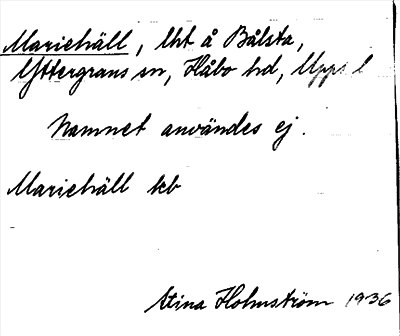 Mariehäll, lht å Bålsta,
Yttergrans sn, Håbo hd, Upps l
Namnet användes ej.
Mariehäll kb
Stina Holmström 1936